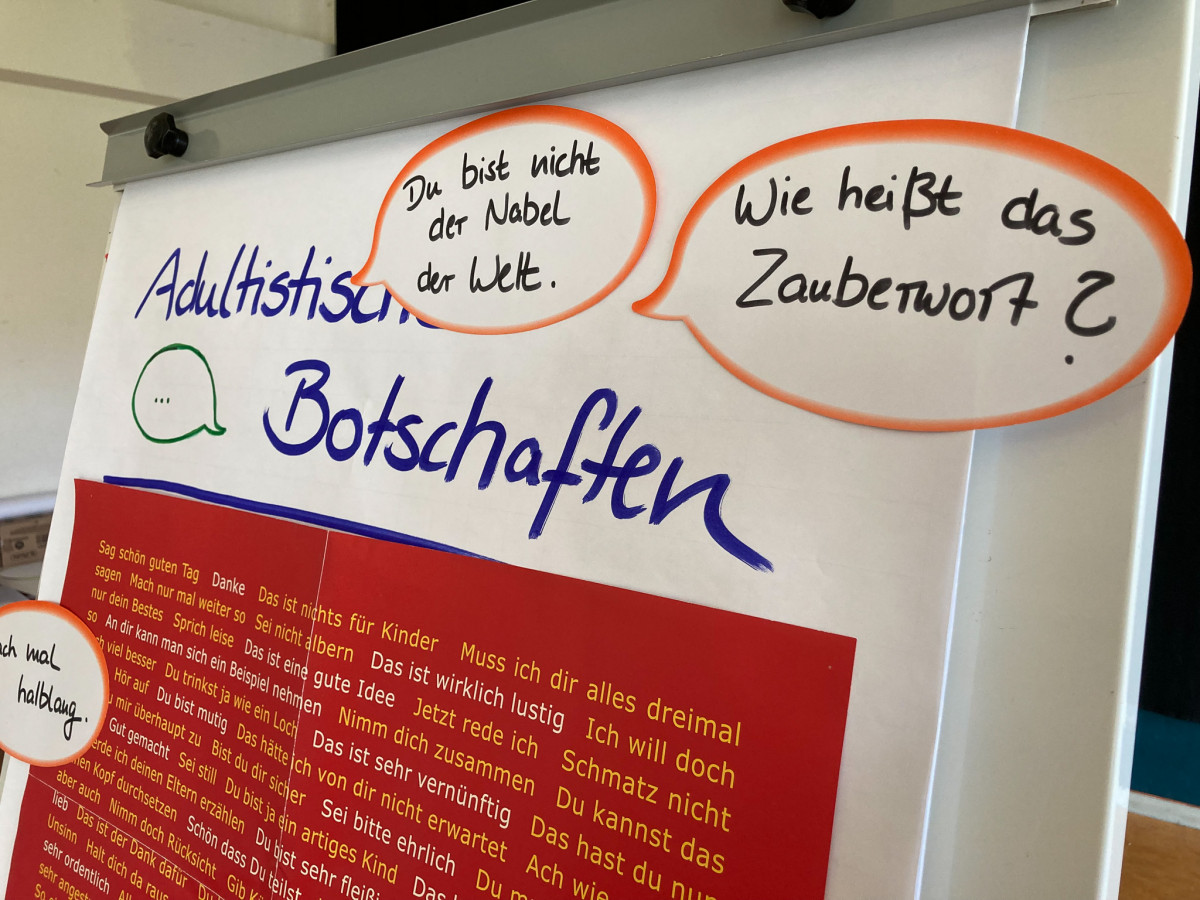 Du bist nicht
der Nabel
der Welt.
Wie heißt das
Zauberwort?
Adultistisch
...
Botschaften
ach mal
halblang.
Sag schön guten Tag Danke Das ist nichts für Kinder Muss ich dir alles dreimal
sagen Mach nur mal weiter so Sei nicht albern Das ist wirklich lustig Ich will doch
nur dein Bestes Sprich leise Das ist eine gute Idee Jetzt rede ich Schmatz nicht
so An dir kann man sich ein Beispiel nehmen Nimm dich zusammen Du kannst das
viel besser Du trinkst ja wie ein Loch Das ist sehr vernünftig Das hast du nur
Hör auf Du bist mutig Das hätte ich von dir nicht erwartet Ach wie
mir überhaupt zu Bist du dir sicher Sei bitte ehrlich Du
Gut gemacht Sei still Du bist ja ein artiges Kind Das
erde ich deinen Eltern erzählen Du bist sehr fleißi
en Kopf durchsetzen Schön dass Du teilst
aber auch Nimm doch Rücksicht Gib
lieb Das ist der Dank dafür Du
Unsinn Halt dich da raus
sehr ordentlich
sehr angest